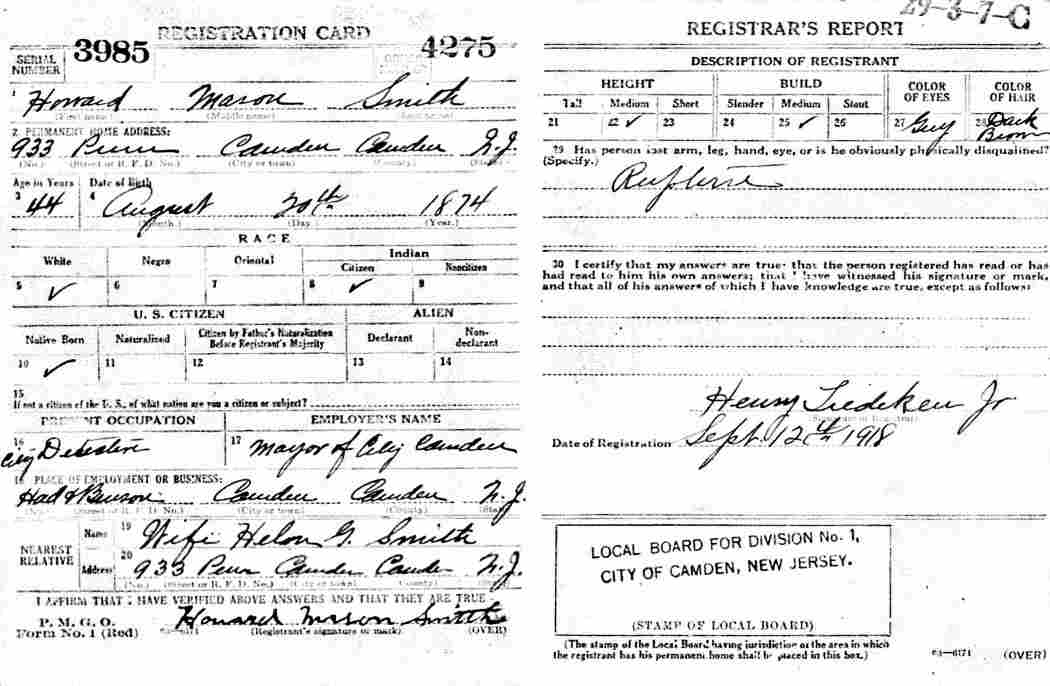 REGISTRATION CARD
SERIAL NUMBER 3985 4275
1 Howard Mason Smith
(First name) (Middle name) (Last name)
2 PERMANENT HOME ADDRESS:
933 Penn Camden Camden N.J.
(No.) (Street or R. F. D. No.) (City or town) (County) (State)
Age in Years Date of Birth
3 44 4 August 20th 1874
(Month.) (Day.) (Year.)
RACE
White Negro Oriental Indian
Citizen Noncitizen
5 ✓ 6 7 8 ✓ 9
U. S. CITIZEN ALIEN
Native Born Naturalized Citizen by Father's Naturalization Before Registrant's Majority Declarant Non-declarant
10 ✓ 11 12 13 14
15
If not a citizen of the U. S., of what nation are you a citizen or subject?
PRESENT OCCUPATION EMPLOYER'S NAME
16 City Detective 17 Mayor of City Camden
18 PLACE OF EMPLOYMENT OR BUSINESS:
Camden Camden N.J.
(No.) (Street or R. F. D. No.) (City or town) (County) (State)
NEAREST RELATIVE
Name 19 Wife Helon G. Smith
Address 20 933 Penn Camden Camden N.J.
(No.) (Street or R. F. D. No.) (City or town) (County) (State)
I AFFIRM THAT I HAVE VERIFIED ABOVE ANSWERS AND THAT THEY ARE TRUE
P. M. G. O.
Form No. 1 (Red) 03-6171 Howard Mason Smith
(Registrant's signature or mark) (OVER)
29-3-7-C
REGISTRAR'S REPORT
DESCRIPTION OF REGISTRANT
HEIGHT BUILD COLOR OF EYES COLOR OF HAIR
Tall Medium Short Slender Medium Stout
21 22 ✓ 23 24 25 ✓ 26 27 Grey 28 Dark Brown
29 Has person lost arm, leg, hand, eye, or is he obviously physically disqualified?
(Specify.)
30 I certify that my answers are true; that the person registered has read or has
had read to him his own answers; that I have witnessed his signature or mark,
and that all of his answers of which I have knowledge are true, except as follows:
Henry Tiedeken Jr
(Signature of Registrar)
Date of Registration Sept. 12th 1918
LOCAL BOARD FOR DIVISION No. 1,
CITY OF CAMDEN, NEW JERSEY.
(STAMP OF LOCAL BOARD)
(The stamp of the Local Board having jurisdiction of the area in which
the registrant has his permanent home shall be placed in this box.)
03-6171 (OVER)